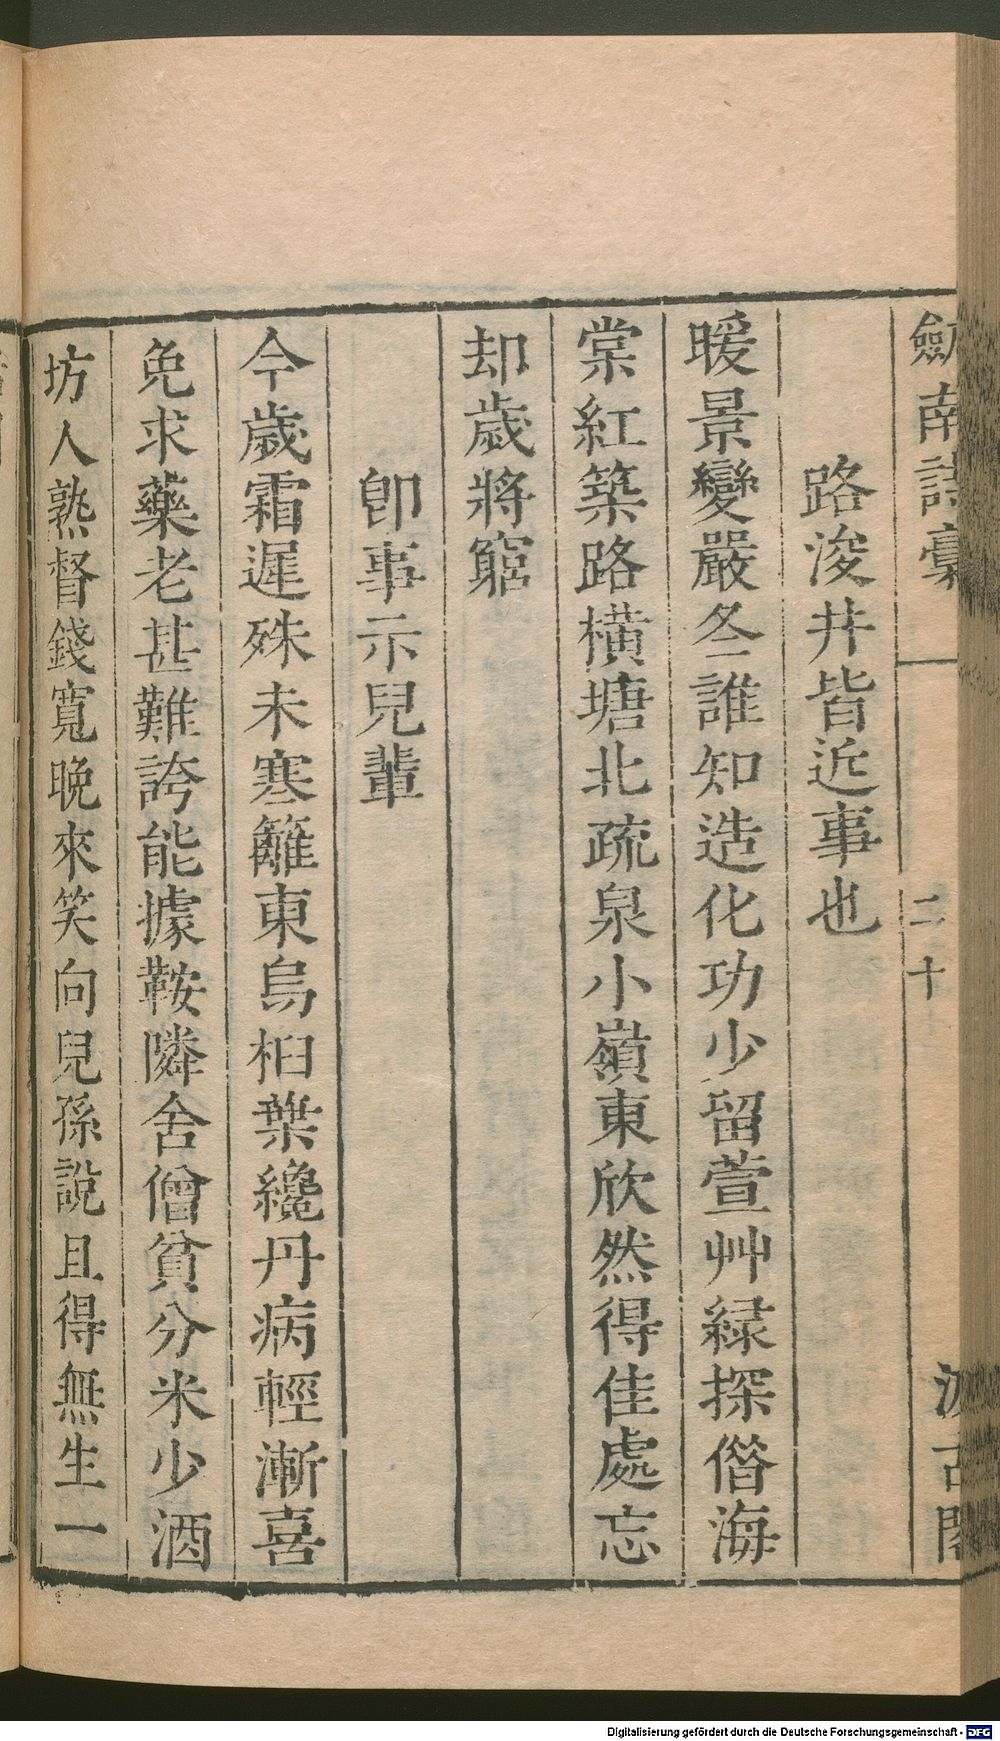 劒南詩稾
二十
汲古閣
路浚井皆近事也
暖景變嚴冬誰知造化功少留萱艸緑探僭海
棠紅築路橫塘北疏泉小嶺東欣然得佳處忘
却歲將窮
卽事示兒輩
今歲霜遲殊未寒籬東烏桕葉纔丹病輕漸喜
免求藥老甚難誇能據鞍隣舍僧貧分米少酒
坊人熟督錢寬晚來笑向兒孫說且得無生一
Digitalisierung gefördert durch die Deutsche Forschungsgemeinschaft - DFG